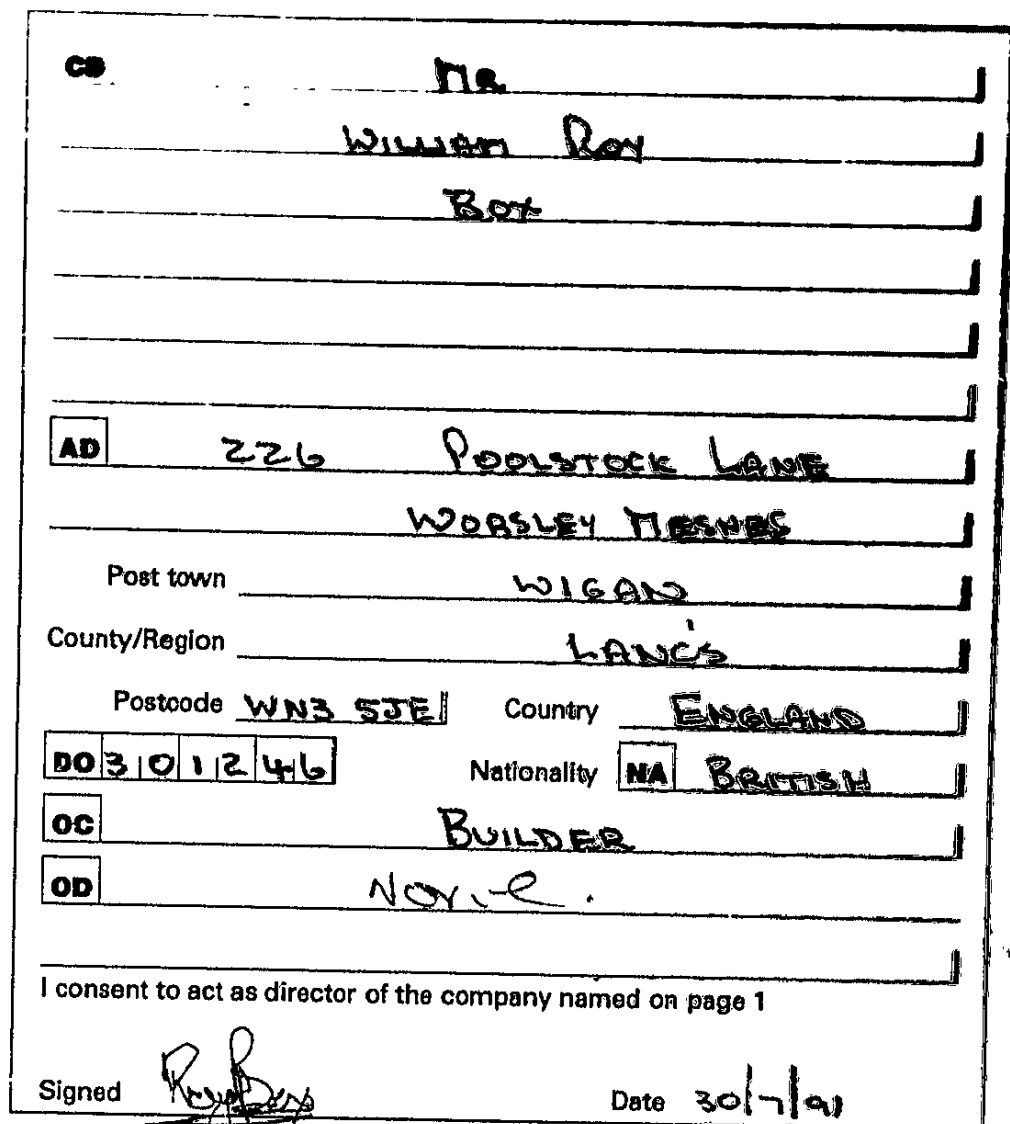 CD MR.
WILLIAM ROY
BOX
AD 226 POOLSTOCK LANE
WORSLEY MESNES
Post town WIGAN
County/Region LANC'S
Postcode WN3 5JE Country ENGLAND
DO 30 12 46 Nationality NA BRITISH
OC BUILDER
OD None.
I consent to act as director of the company named on page 1
Signed Roy Box Date 30/7/91